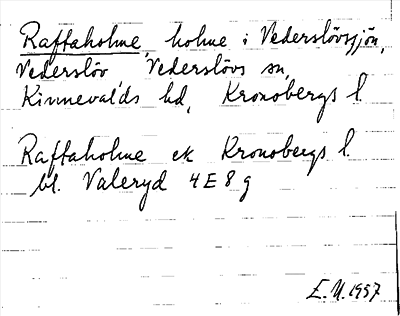 Raftaholme, holme i Vederslövsjön,
Vederslöv, Vederslövs sn,
Kinnevalds hd, Kronobergs l.
Raftaholme ek Kronobergs l.
bl. Valeryd 4E8g
E.U.1957